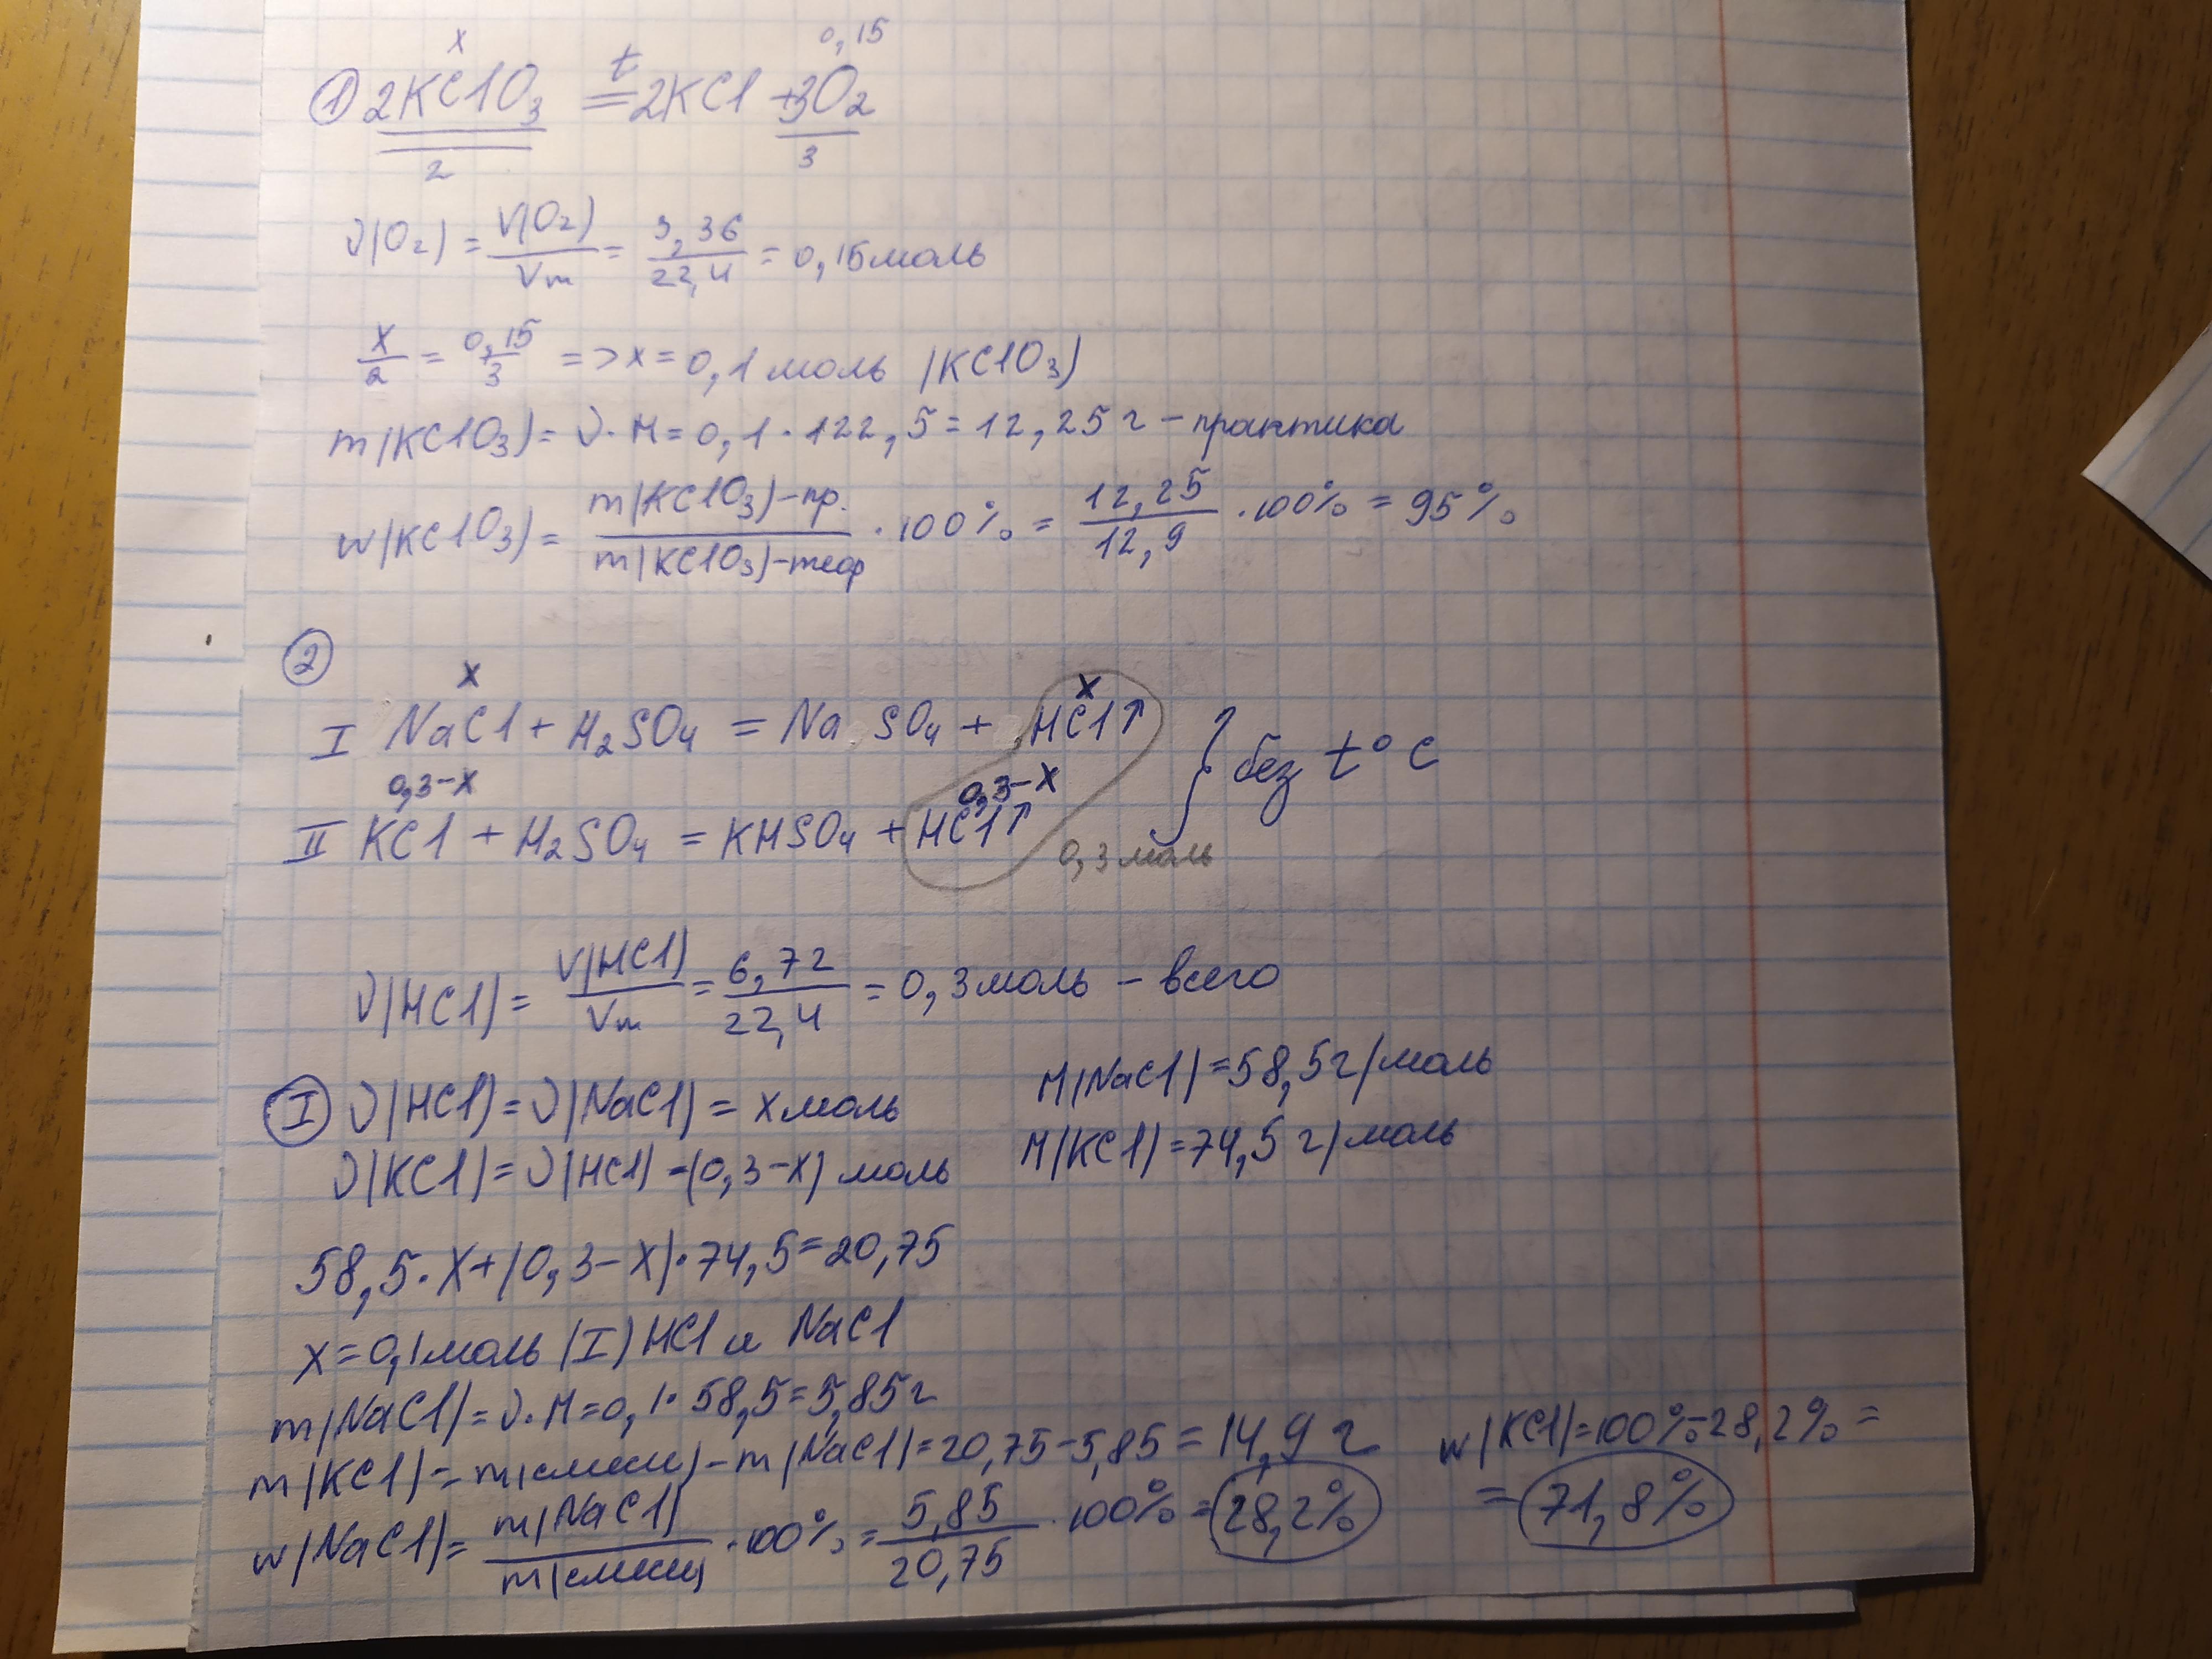 x 0,15
① 2KClO₃ =ᵗ 2KCl + 3O₂
2 3
ν(O₂) = V(O₂)/Vm = 3,36/22,4 = 0,15 моль
x/2 = 0,15/3 => x = 0,1 моль (KClO₃)
m(KClO₃) = ν · M = 0,1 · 122,5 = 12,25 г – практика
w(KClO₃) = m(KClO₃)–пр./m(KClO₃)–теор · 100% = 12,25/12,9 · 100% = 95%
②
x x
I NaCl + H₂SO₄ = Na SO₄ + HCl↑
} без t°C
0,3–x 0,3–x
II KCl + H₂SO₄ = KHSO₄ + HCl↑
0,3 моль
ν(HCl) = V(HCl)/Vm = 6,72/22,4 = 0,3 моль – всего
Ⓘ ν(HCl) = ν(NaCl) = x моль M(NaCl) = 58,5 г/моль
ν(KCl) = ν(HCl) = (0,3–x) моль M(KCl) = 74,5 г/моль
58,5 · x + (0,3–x) · 74,5 = 20,75
x = 0,1 моль (I) HCl и NaCl
m(NaCl) = ν · M = 0,1 · 58,5 = 5,85 г
m(KCl) = m(смеси) – m(NaCl) = 20,75 – 5,85 = 14,9 г
w(NaCl) = m(NaCl)/m(смеси) · 100% = 5,85/20,75 · 100% = 28,2%
w(KCl) = 100% – 28,2% =
= 71,8%